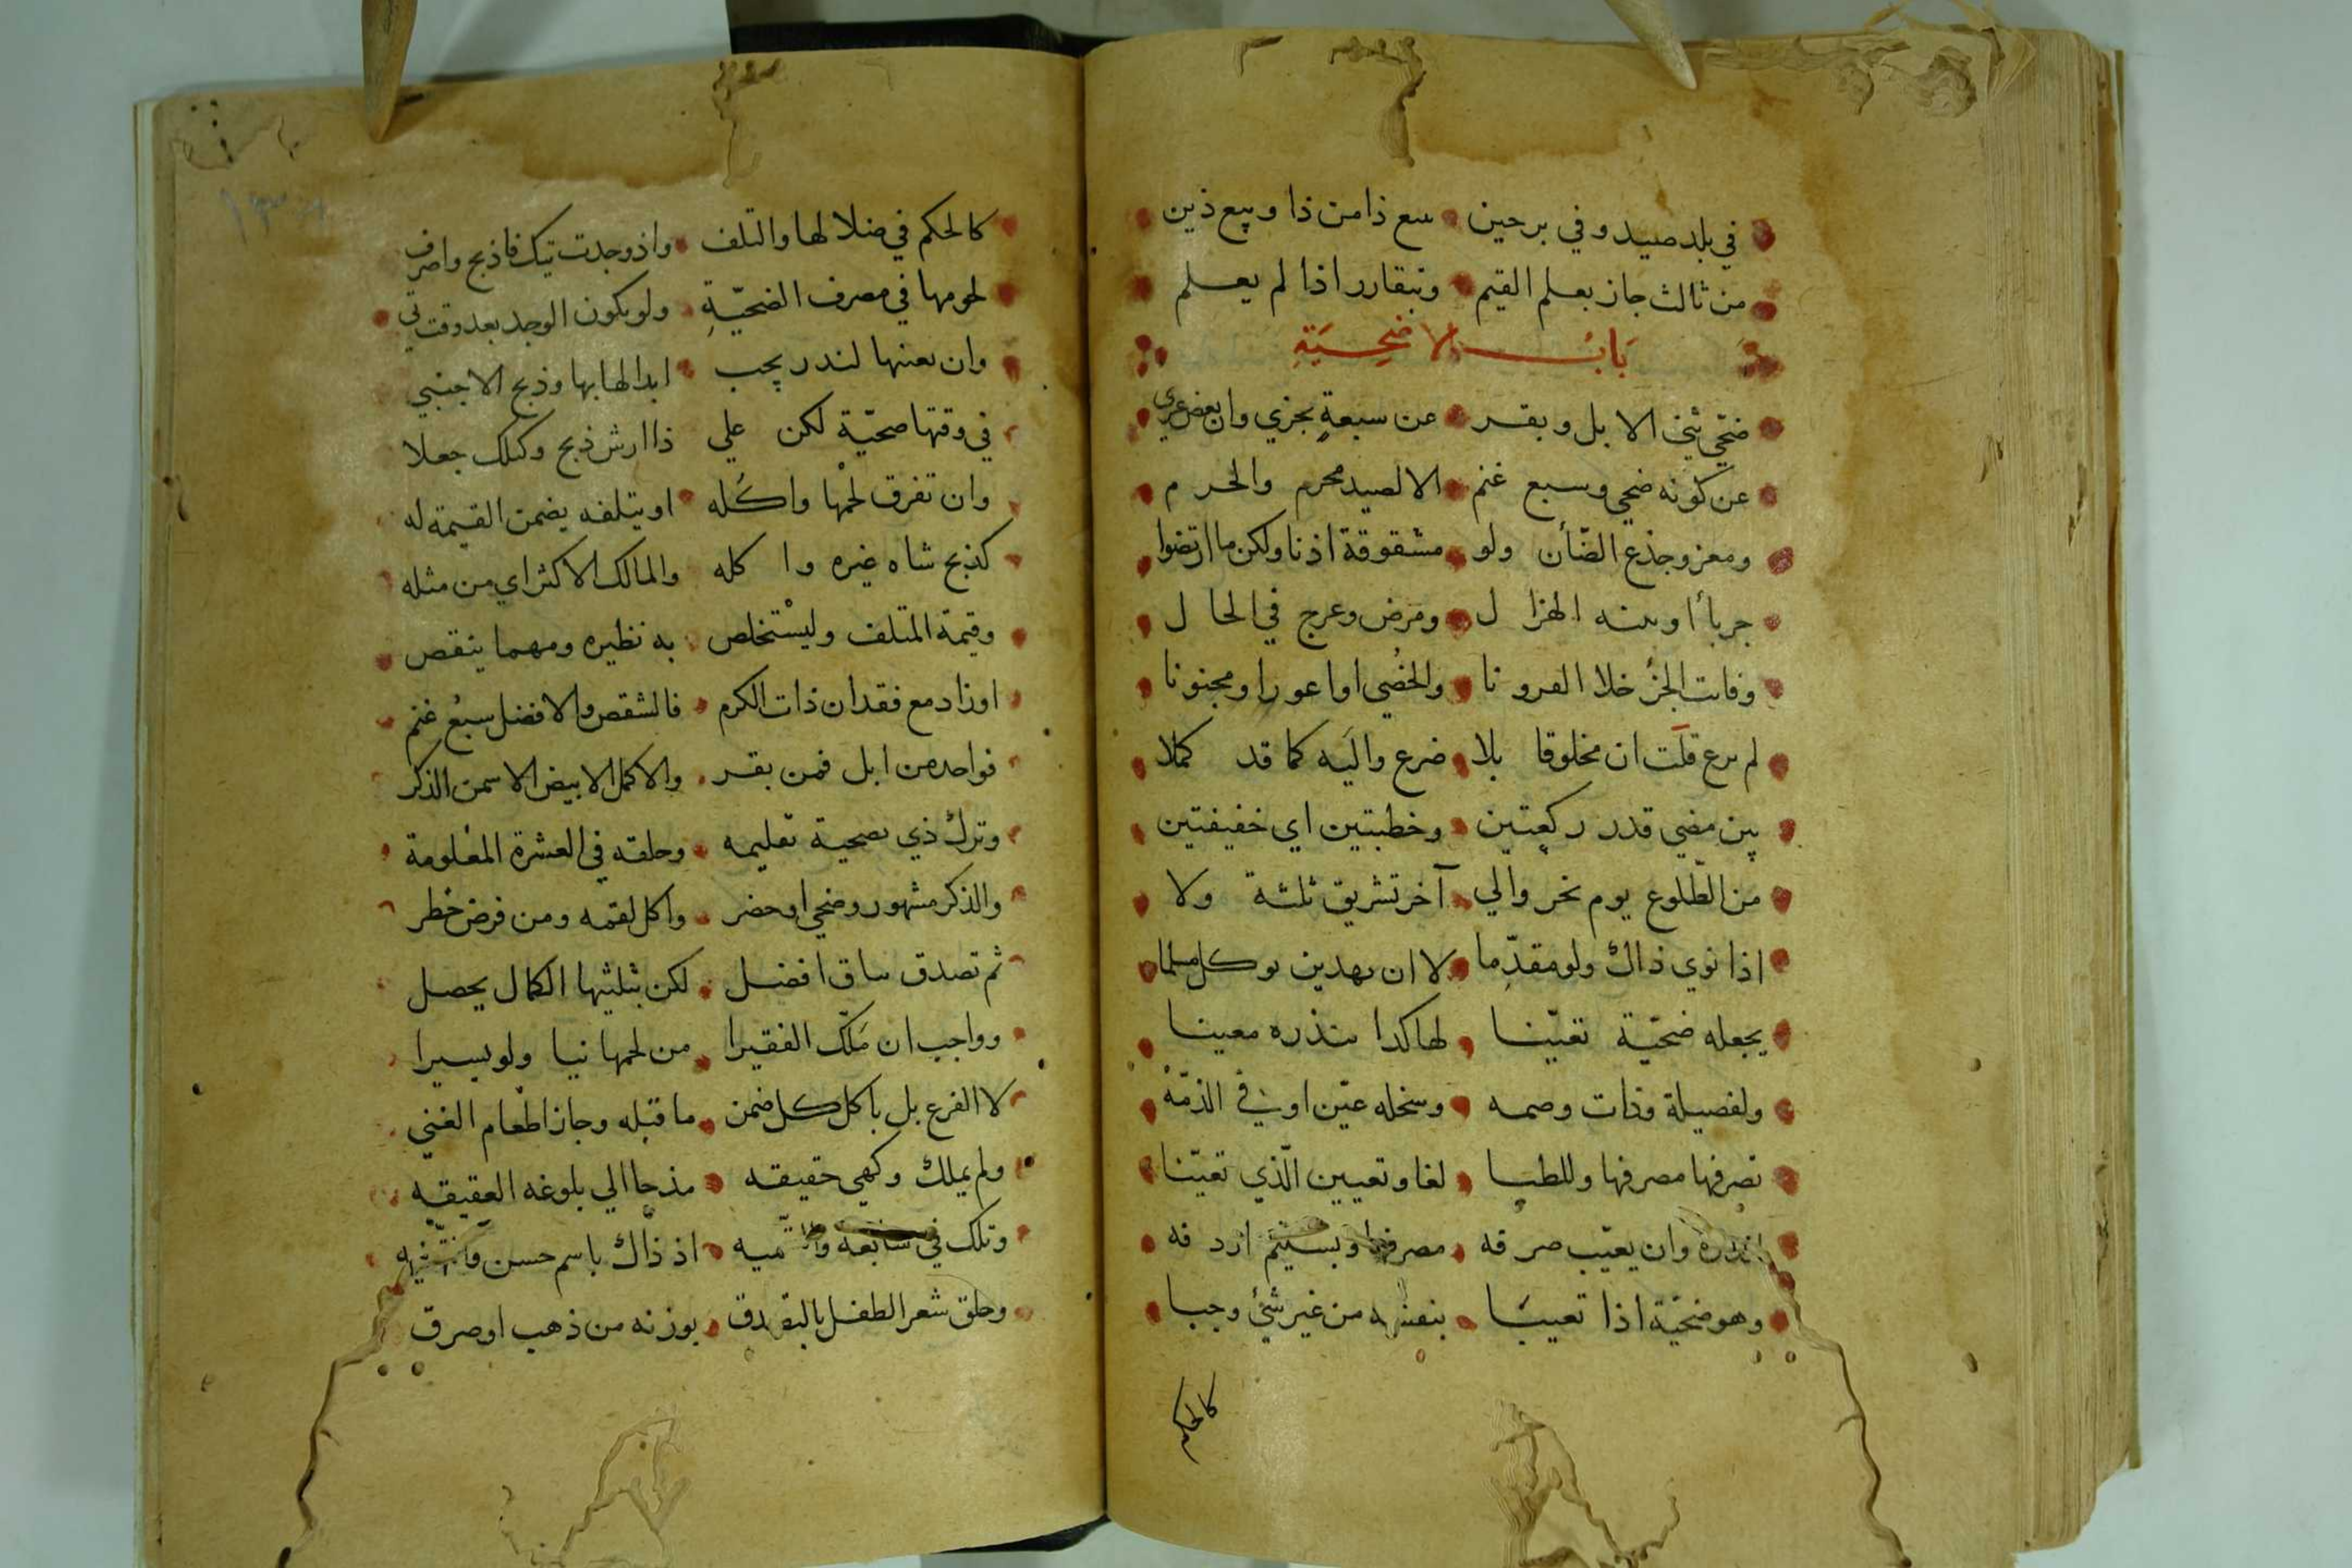 في بلد صيد وفي برحين بيع ذا من ذا وبيع ذين
من ثالث جاز بعلم القيم وبتقارر اذا لم يعلم
باب الاضحية
ضحي ثني الابل وبقر عن سبعة يجزي وان بعض عري
عن كونه ضحي وسبع غنم الا لصيد محرم والحرم
ومعز وجذع الضأن ولو مشقوقة اذنا ولكن ما ارتضوا
جربا أو بينه الهزال ومرض وعرج في الحال
وفائت الجزء خلا القرونا والخصي او اعورا ومجنونا
لم يرع قلت ان مخلوقا بلا ضرع والية كما قد كملا
بين مضي قدر ركعتين وخطبتين اي خفيفتين
من الطلوع يوم نحر والي آخر تشريق ثلثة ولا
اذا نوي ذاك ولو مقدما لا ان بهذين يوكل مسلما
يجعله ضحية تعينا لها كذا بنذره معينا
ولفصيلة وذات وصمه وسخله عين او في الذمة
تصرفها مصرفها وللطبا لغا وتعيين الذي تعينا
بنذره وان يعيب صرفه مصرفها وبسليم اردفه
وهو ضحية اذا تعيبا بنفسه من غير شئ وجبا
كالحكم
كالحكم في ضلالها والتلف واذ وجدت تيك فاذبح واصرف
لحومها في مصرف الضحية ولو يكون الوجد بعد وقت تي
وان يعنها لنذر يجب ابدالها بها وذبح الاجنبي
في وقتها ضحية لكن علي ذا ارش ذبح وكتلك جعلا
وان تفرق لحمها واكله او يتلفه يضمن القيمة له
كذبح شاه غيره واكله والمالك الاكثر اي من مثله
وقيمة المتلف وليستخلص به نظيره ومهما ينقص
او زاد مع فقدان ذات الكرم فالشقص والافضل سبع غنم
فواحد من ابل فمن بقر والاكمل الابيض الاسمن الذكر
وترك ذي تضحية تقليمه وحلقه في العشرة المعلومة
والذكر مشهور وضحي او حضر واكل لقمه ومن فرض حظر
ثم تصدق بباق افضل لكن بثلثيها الكمال يحصل
وواجب ان ملك الفقيرا من لحمها نيا ولو يسيرا
لا الفرع بل باكل كل ضمن ما قبله وجاز اطعام الغني
ولم يملك وكهي حقيقه مذ جا الي بلوغه العقيقه
وتلك في سابعه والتسميه اذ ذاك باسم حسن
وحلق شعر الطفل بالتصدق بوزنه من ذهب او صرق